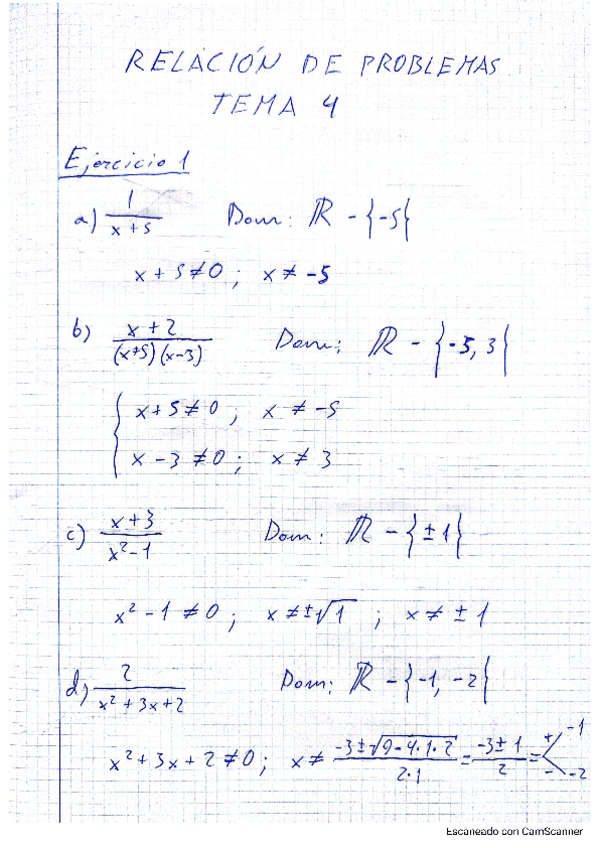 RELACIÓN DE PROBLEMAS
TEMA 4
Ejercicio 1
a) 1/(x+5) Dom: ℝ - {-5}
x + 5 ≠ 0 ; x ≠ -5
b) (x+2)/((x+5)(x-3)) Dom: ℝ - {-5, 3}
x + 5 ≠ 0 ; x ≠ -5
x - 3 ≠ 0 ; x ≠ 3
c) (x+3)/(x²-1) Dom: ℝ - {±1}
x² - 1 ≠ 0 ; x ≠ ±√1 ; x ≠ ±1
d) 2/(x²+3x+2) Dom: ℝ - {-1, -2}
x² + 3x + 2 ≠ 0 ; x ≠ (-3±√(9-4·1·2))/(2·1) = (-3±1)/2 = + -1
- -2
Escaneado con CamScanner